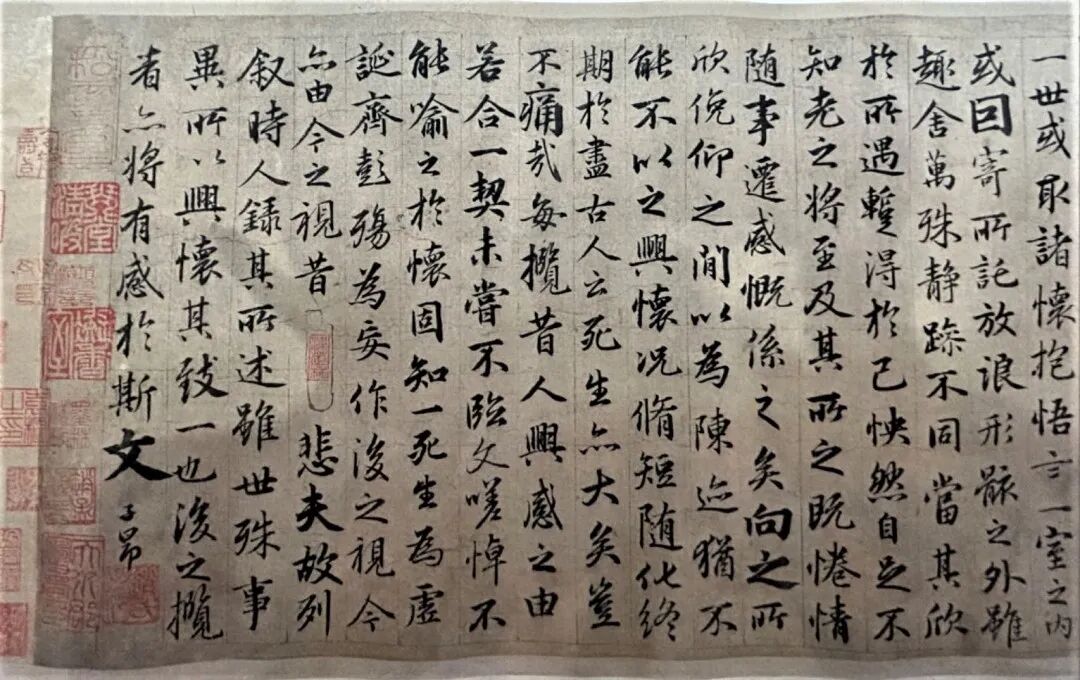 一世或取諸懷抱悟言一室之内
或因寄所託放浪形骸之外雖
趣舍萬殊静躁不同當其欣
於所遇暫得於己怏然自足不
知老之將至及其所之既惓情
随事遷感慨係之矣向之所
欣俛仰之間以為陳迹猶不
能不以之興懷况脩短随化終
期於盡古人云死生亦大矣豈
不痛哉每攬昔人興感之由
若合一契未嘗不臨文嗟悼不
能喻之於懷固知一死生為虚
誕齊彭殤為妄作後之視今
亦由今之視昔 悲夫故列
叙時人録其所述雖世殊事
異所以興懷其致一也後之攬
者亦將有感於斯文 子昂